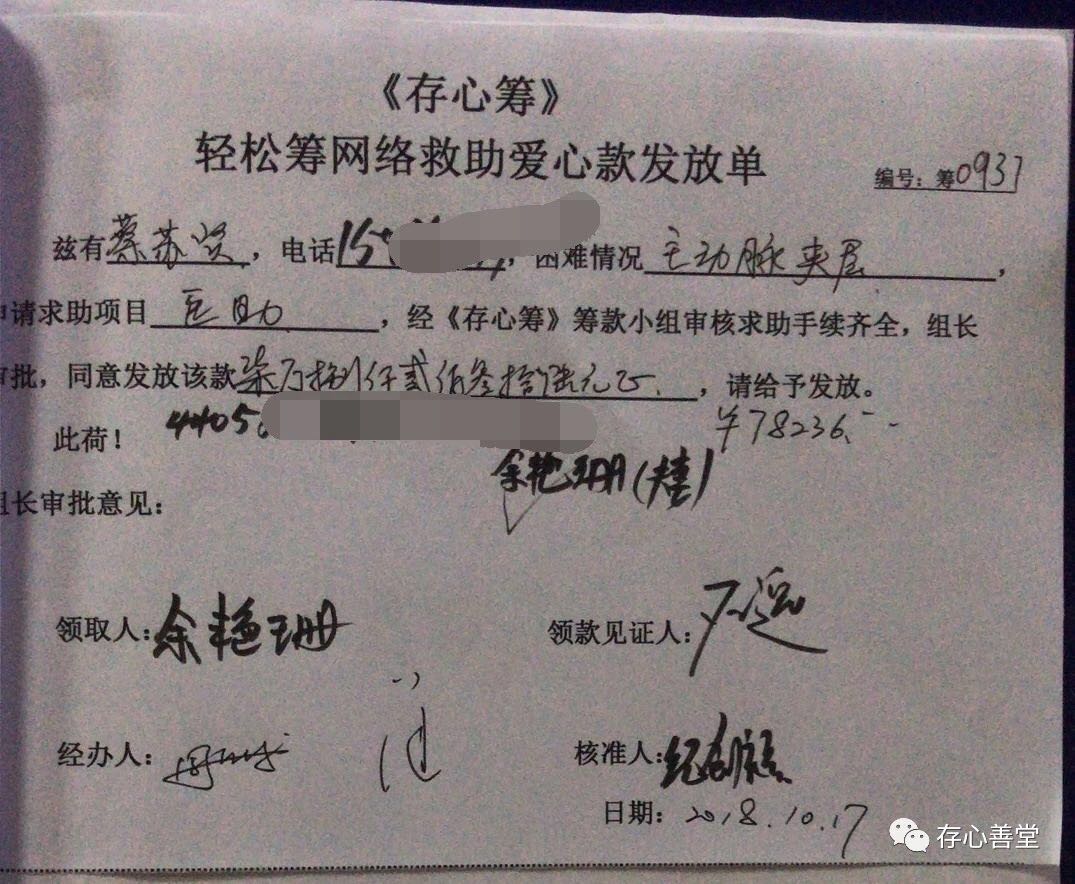 《存心筹》
轻松筹网络救助爱心款发放单
编号：筹0937
兹有蔡苏贤，电话15，困难情况主动脉夹层，
申请求助项目医助，经《存心筹》筹款小组审核求助手续齐全，组长
审批，同意发放该款柒万捌仟贰佰叁拾陆元正，请给予发放。
此荷！ 4405 ￥78236.-
余艳珊(妻)
组长审批意见：
领取人：余艳珊 领款见证人：
经办人： 核准人：
日期：2018.10.17
存心善堂